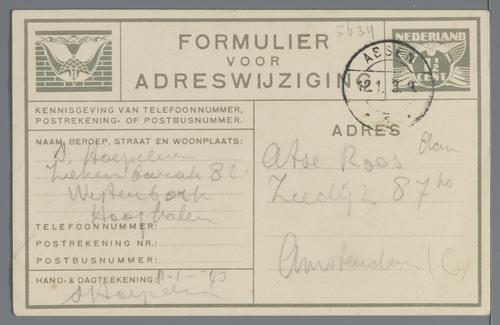 5634
FORMULIER
VOOR
ADRESWIJZIGING
NEDERLAND
CENT
ASSEN
KENNISGEVING VAN TELEFOONNUMMER,
POSTREKENING- OF POSTBUSNUMMER.
NAAM, BEROEP, STRAAT EN WOONPLAATS:
Ziekenbarak 82
Westerbork
Hooghalen
TELEFOONNUMMER:
POSTREKENING NR.:
POSTBUSNUMMER:
HAND- & DAGTEEKENING:
ADRES
Atse Roos
Zeedijk 87 hs
Amsterdam (C)